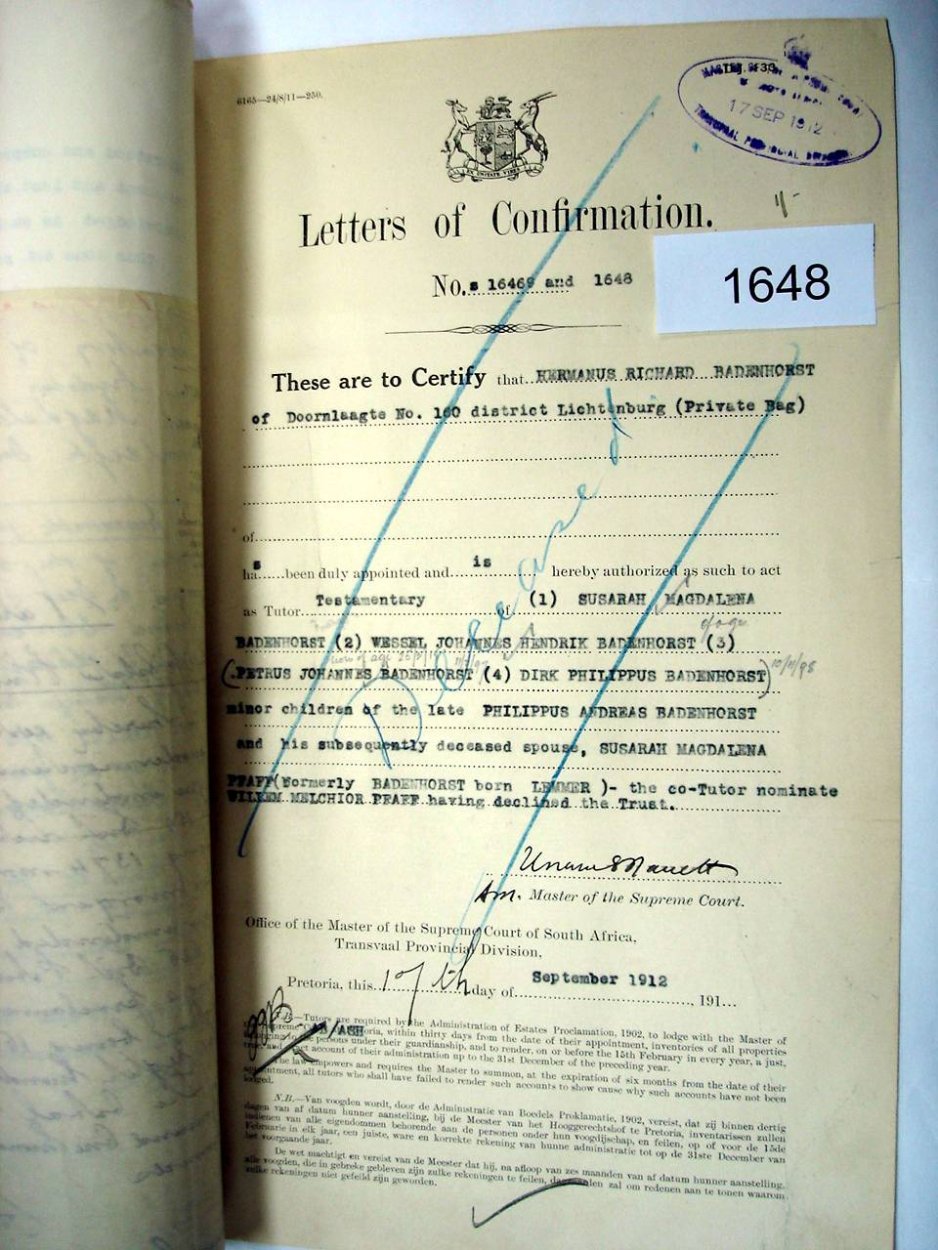 6165—24/8/11—250.
17 SEP 1912
TRANSVAAL PROVINCIAL
EX UNITATE VIRES
Letters of Confirmation.
No.s 16469 and 1648
1648
These are to Certify that HERMANUS RICHARD BADENHORST
of Doornlaagte No. 160 district Lichtenburg (Private Bag)
of
has been duly appointed and is hereby authorized as such to act
as Tutor Testamentary of (1) SUSARAH MAGDALENA
of age
BADENHORST (2) WESSEL JOHANNES HENDRIK BADENHORST (3)
(PETRUS JOHANNES BADENHORST (4) DIRK PHILIPPUS BADENHORST)
minor children of the late PHILIPPUS ANDREAS BADENHORST
and his subsequently deceased spouse, SUSARAH MAGDALENA
PFAFF(formerly BADENHORST born LEMMER )- the co-Tutor nominate
WILLEM MELCHIOR PFAFF having declined the Trust.
Deceased
Asst. Master of the Supreme Court.
Office of the Master of the Supreme Court of South Africa,
Transvaal Provincial Division,
Pretoria, this 17th day of September 1912, 191
/ASH
N.B.—Tutors are required by the Administration of Estates Proclamation, 1902, to lodge with the Master of
the Supreme Court, Pretoria, within thirty days from the date of their appointment, inventories of all properties
belonging to the persons under their guardianship, and to render, on or before the 15th February in every year, a just,
true and exact account of their administration up to the 31st December of the preceding year.
The law empowers and requires the Master to summon, at the expiration of six months from the date of their
appointment, all tutors who shall have failed to render such accounts to show cause why such accounts have not been
lodged.
N.B.—Van voogden wordt, door de Administratie van Boedels Proklamatie, 1902, vereist, dat zij binnen dertig
dagen van af datum hunner aanstelling, bij de Meester van het Hooggerechtshof te Pretoria, inventarissen zullen
indienen van alle eigendommen behorende aan de personen onder hun voogdijschap, en feilen, op of voor de 15de
Februarie in elk jaar, een juiste, ware en korrekte rekening van hunne administratie tot op de 31ste December van
het voorgaande jaar.
De wet machtigt en vereist van de Meester dat hij, na afloop van zes maanden van af datum hunner aanstelling,
alle voogden, die in gebreke gebleven zijn zulke rekeningen te feilen, dagvaarden zal om redenen aan te tonen waarom
zulke rekeningen niet gefeild zijn geworden.